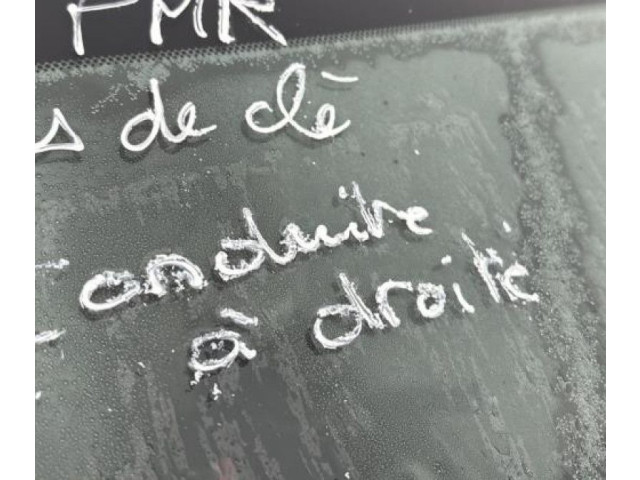 PMR
s de clé
conduite
à droite